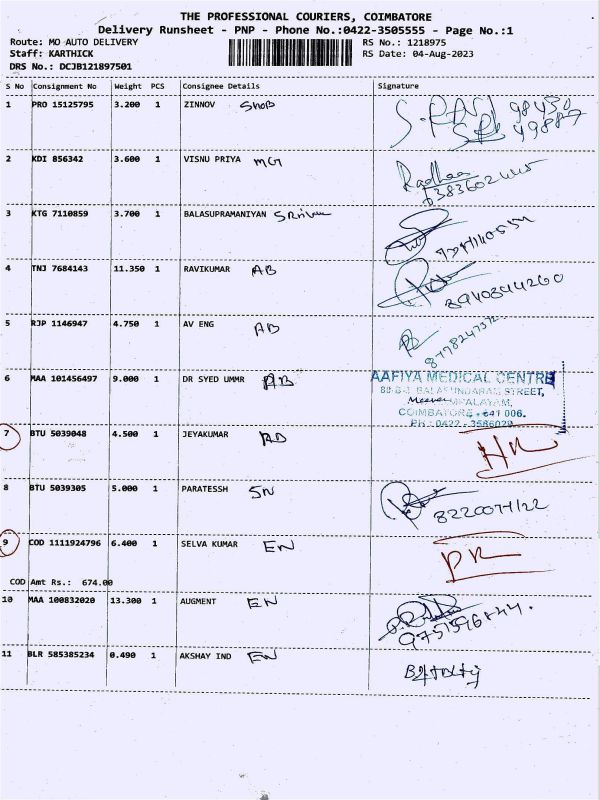 THE PROFESSIONAL COURIERS, COIMBATORE
Delivery Runsheet - PNP - Phone No.:0422-3505555 - Page No.:1
Route: MO AUTO DELIVERY RS No.: 1218975
Staff: KARTHICK RS Date: 04-Aug-2023
DRS No.: DCJB121897501
S No Consignment No Weight PCS Consignee Details Signature
1 PRO 15125795 3.200 1 ZINNOV
2 KDI 856342 3.600 1 VISNU PRIYA MG
Radhaa
3 KTG 7110859 3.700 1 BALASUPRAMANIYAN
4 TNJ 7684143 11.350 1 RAVIKUMAR AB
8940844260
5 RJP 1146947 4.750 1 AV ENG AB
6 MAA 101456497 9.000 1 DR SYED UMMR AB
AAFIYA MEDICAL CENTRE
STREET,
COIMBATORE - 641 006.
PH: 0422-3586029
7 BTU 5039048 4.500 1 JEYAKUMAR
8 BTU 5039305 5.000 1 PARATESSH SN
9 COD 1111924796 6.400 1 SELVA KUMAR EN
COD Amt Rs.: 674.00
10 MAA 100832020 13.300 1 AUGMENT EN
11 BLR 585385234 0.490 1 AKSHAY IND EN